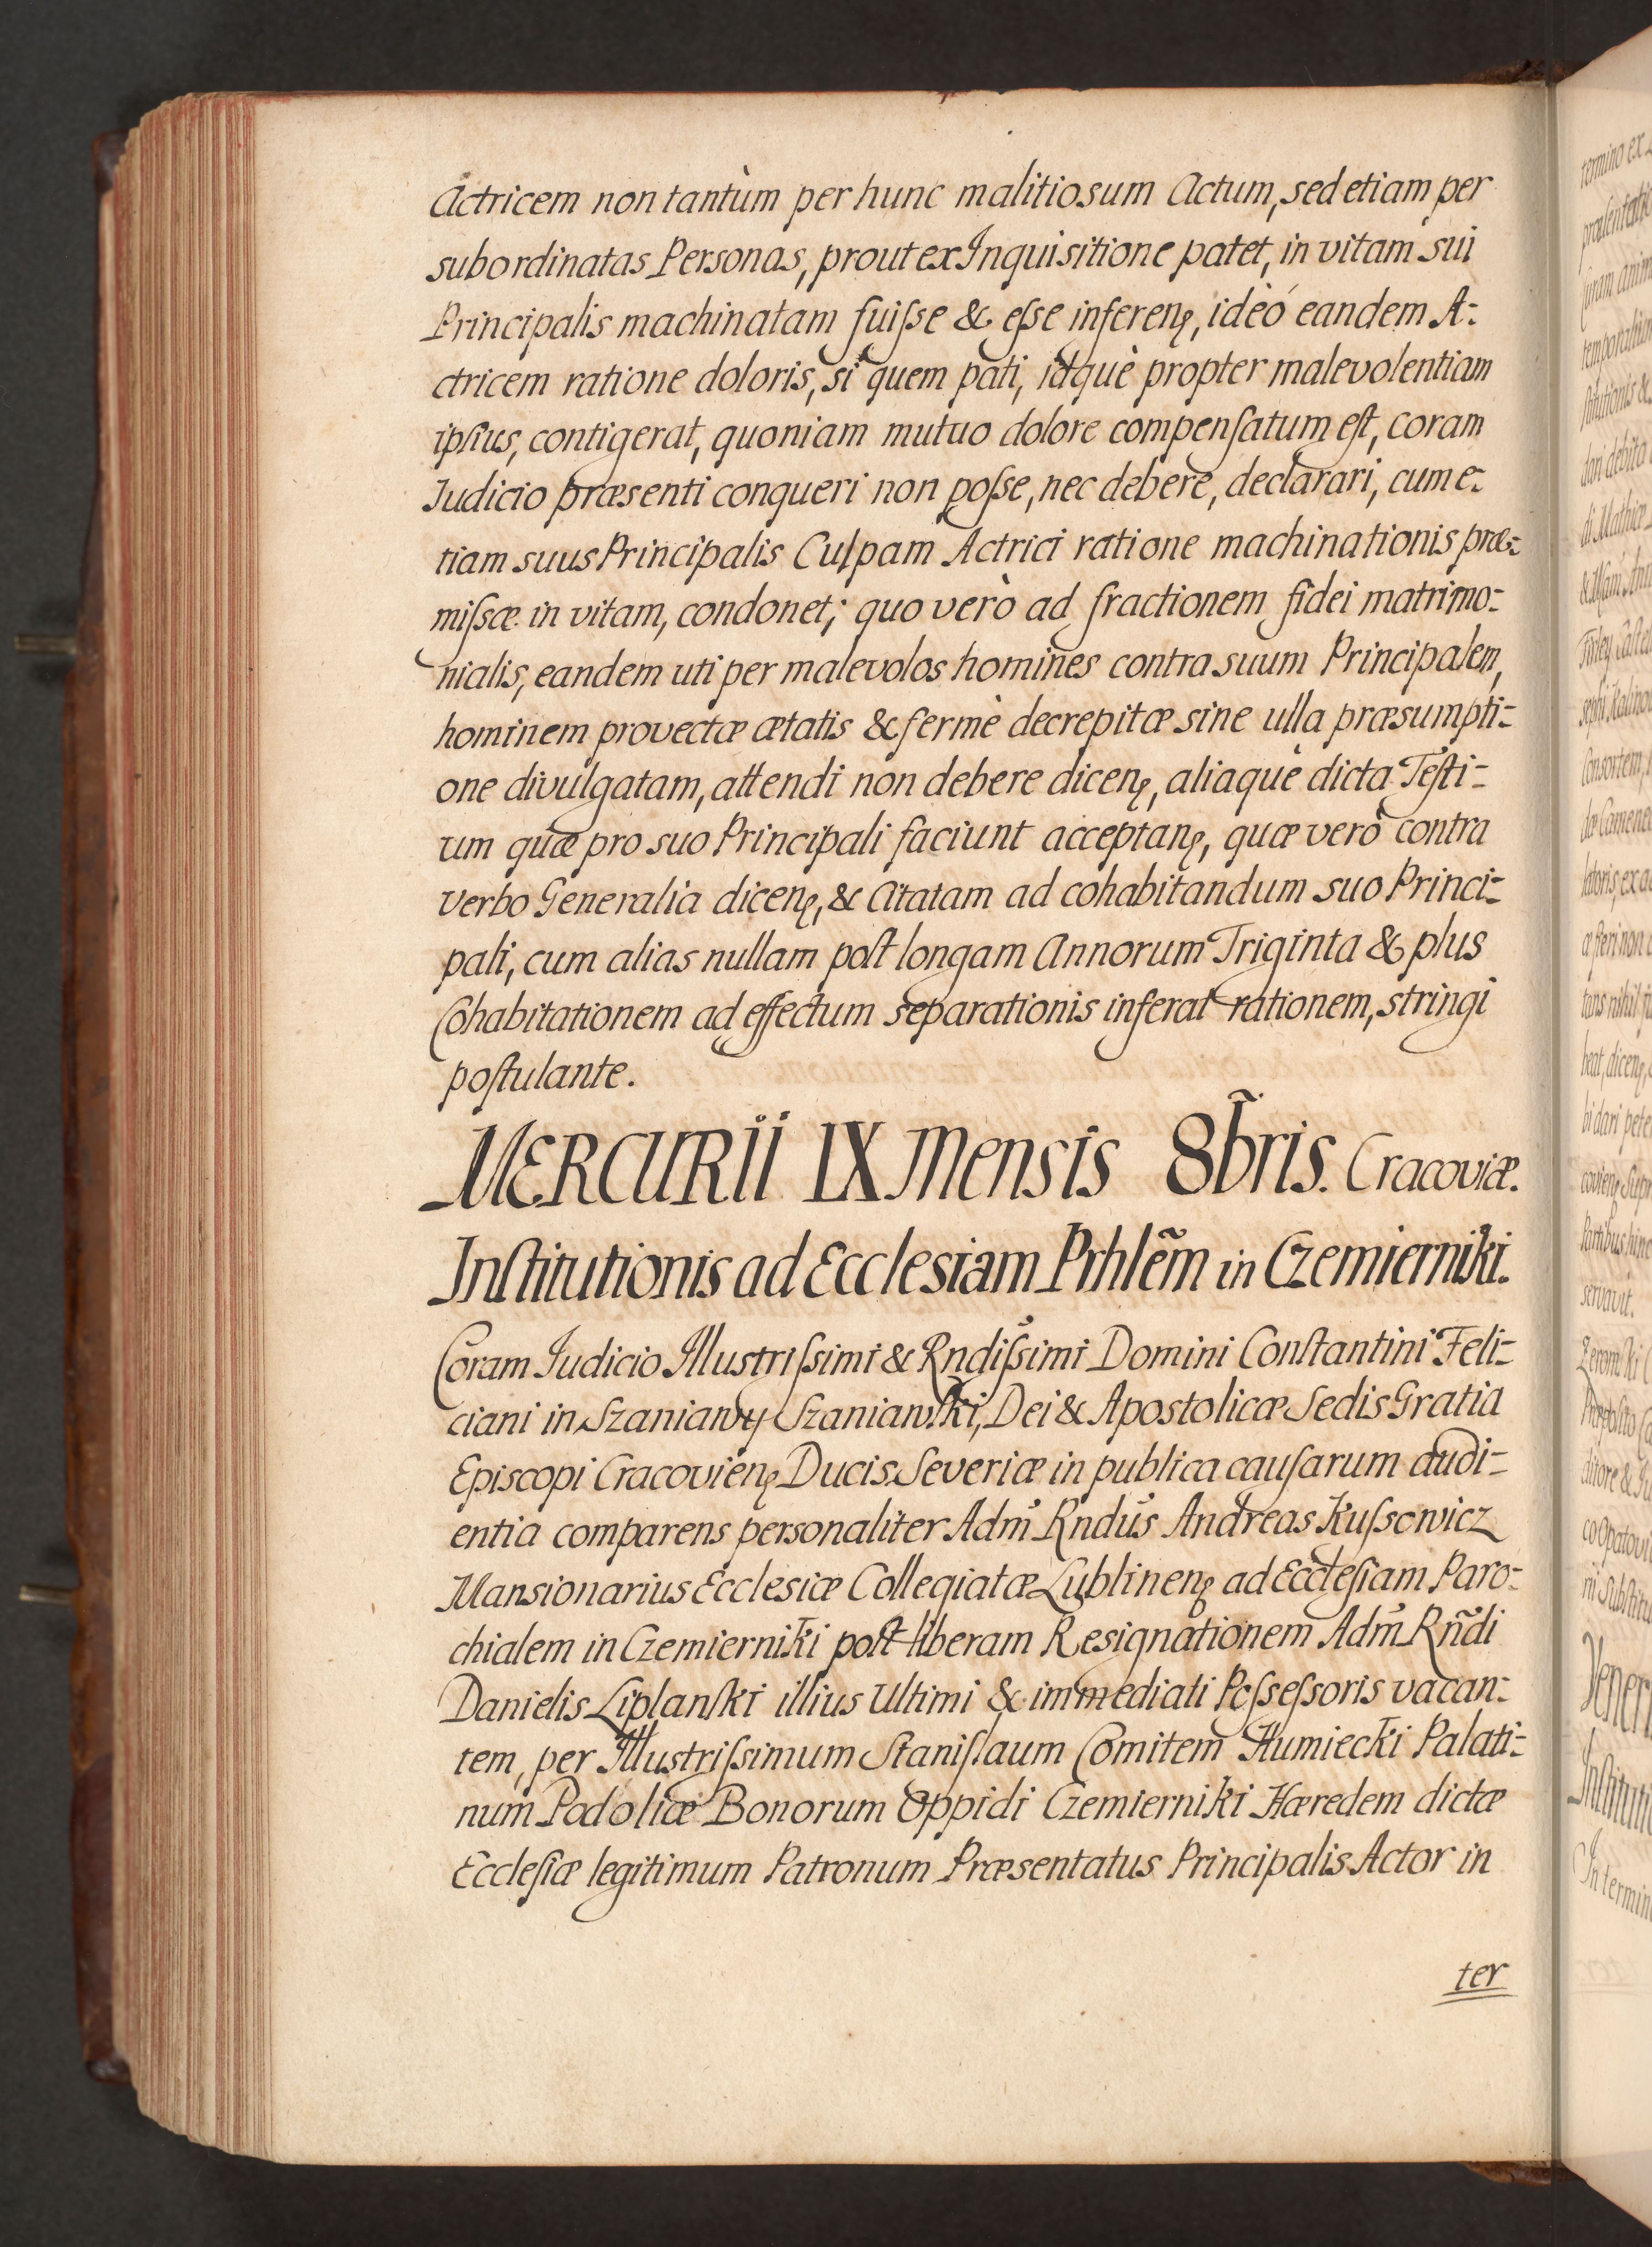 Actricem non tantùm per hunc malitiosum Actum, sed etiam per
subordinatas Personas, prout ex Inquisitione patet, in vitam sui
Principalis machinatam fuiſse & eſse inferenꝫ, ideò eandem A-
ctricem ratione doloris, si quem pati, idquè propter malevolentiam
ipſius, contigerat, quoniam mutuo dolore compenſatum eſt, coram
Iudicio præsenti conqueri non poſse, nec debere, declarari, cum e-
tiam suus Principalis Culpam Actrici ratione machinationis præ-
miſsæ in vitam, condonet; quo verò ad fractionem fidei matrimo-
nialis, eandem uti per malevolos homines contra suum Principalem,
hominem provectæ ætatis & fermè decrepitæ sine ulla præsumpti-
one divulgatam, attendi non debere dicenꝫ, aliaquè dicta Teſti-
um quæ pro suo Principali faciunt acceptanꝫ, quæ verò contra
verbo Generalia dicenꝫ, & Citatam ad cohabitandum suo Princi-
pali, cum alias nullam poſt longam Annorum Triginta & plus
Cohabitationem ad effectum separationis inferat rationem, stringi
poſtulante.
MERCURII IX Mensis 8bris. Cracoviæ.
Inſtitutionis ad Ecclesiam Prhlẽm in Czemierniki.
Coram Iudicio Illustriſsimi & Rndiſsimi Domini Conſtantini Feli-
ciani in Szaniawy Szaniawſki, Dei & Apostolicæ Sedis Gratia
Episcopi Cracovienꝫ Ducis Severiæ in publica cauſarum audi-
entia comparens personaliter Adm̃ Rndũs Andreas Kuſsowicz
Mansionarius Ecclesiæ Collegiatæ Lublinenꝫ ad Eccleſiam Paro-
chialem in Czemierniki poſt liberam Resignationem Adm̃ Rñdi
Danielis Liplanſki illius Ultimi & immediati Poſseſsoris vacan-
tem, per Illustriſsimum Staniſlaum Comitem Humiecki Palati-
num Podoliæ Bonorum Oppidi Czemierniki Hæredem dictæ
Eccleſiæ legitimum Patronum Præsentatus Principalis Actor in
ter